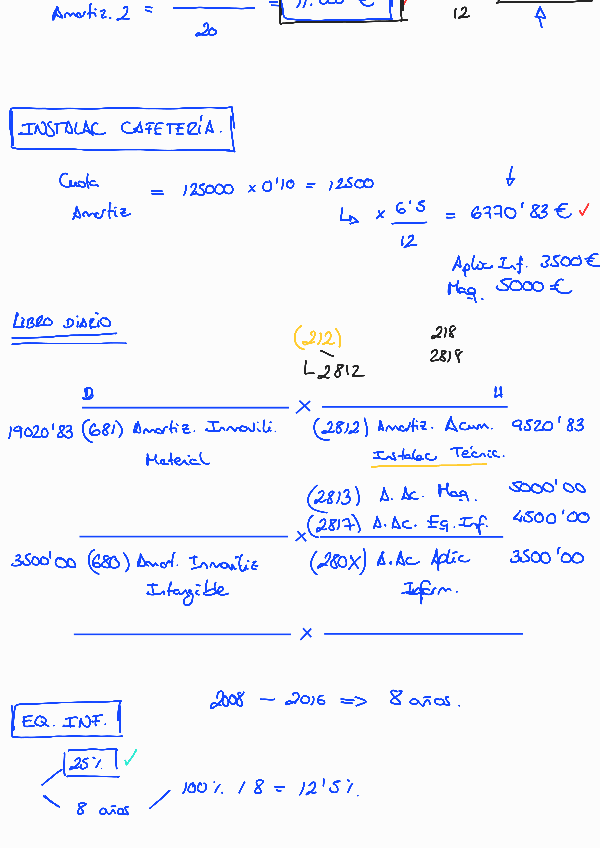 Amortiz. 2 = ――― =
20
12
INSTALAC CAFETERÍA.
Cuota Amortiz = 125000 x 0'10 = 12500
x 6'5 / 12 = 6770'83 € ✓
Aplic Inf. 3500 €
Maq. 5000 €
LIBRO DIARIO
(212) 218
2812 2818
D x H
19020'83 (681) Amortiz. Inmovili. Material (2812) Amortiz. Acum. 9520'83
Instalac Técnic.
(2813) A. Ac. Maq. 5000'00
(2817) A. Ac. Eq. Inf. 4500'00
x
3500'00 (680) Amort. Inmoviliz Intangible (280X) A. Ac Aplic Inform. 3500'00
x
EQ. INF. 2008 – 2016 => 8 años.
25% ✓
8 años 100% / 8 = 12'5%.